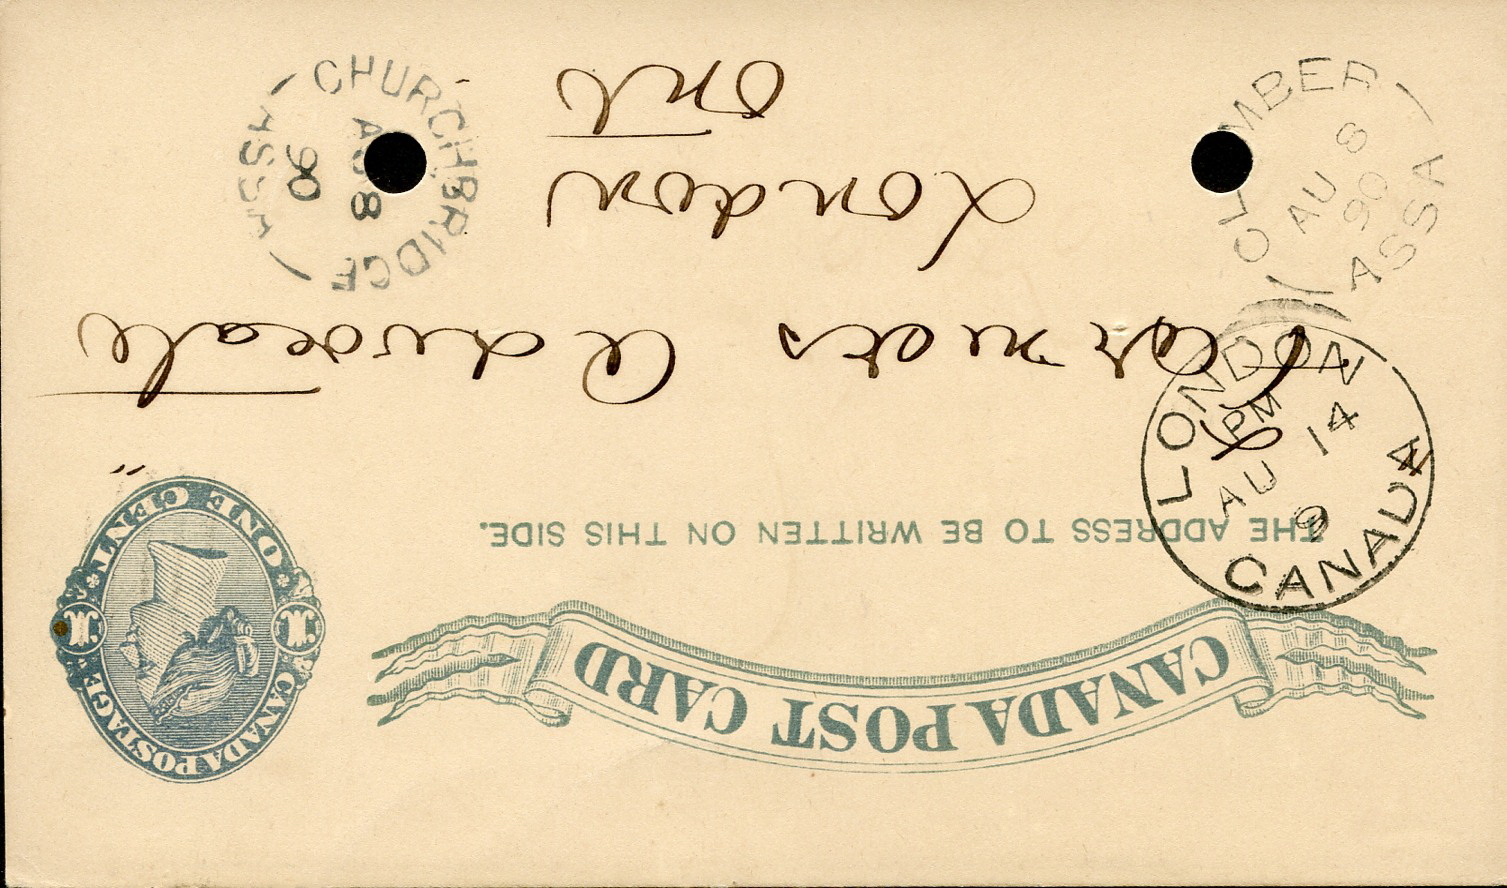 CANADA POST CARD
CANADA POSTAGE
ONE CENT
1
1
THE ADDRESS TO BE WRITTEN ON THIS SIDE.
Farmers Advocate
London
Ont
LONDON
PM
AU 14
9
CANADA
CHURCHBRIDGE
AU 8
90
ASSA
AU 8
90
ASSA